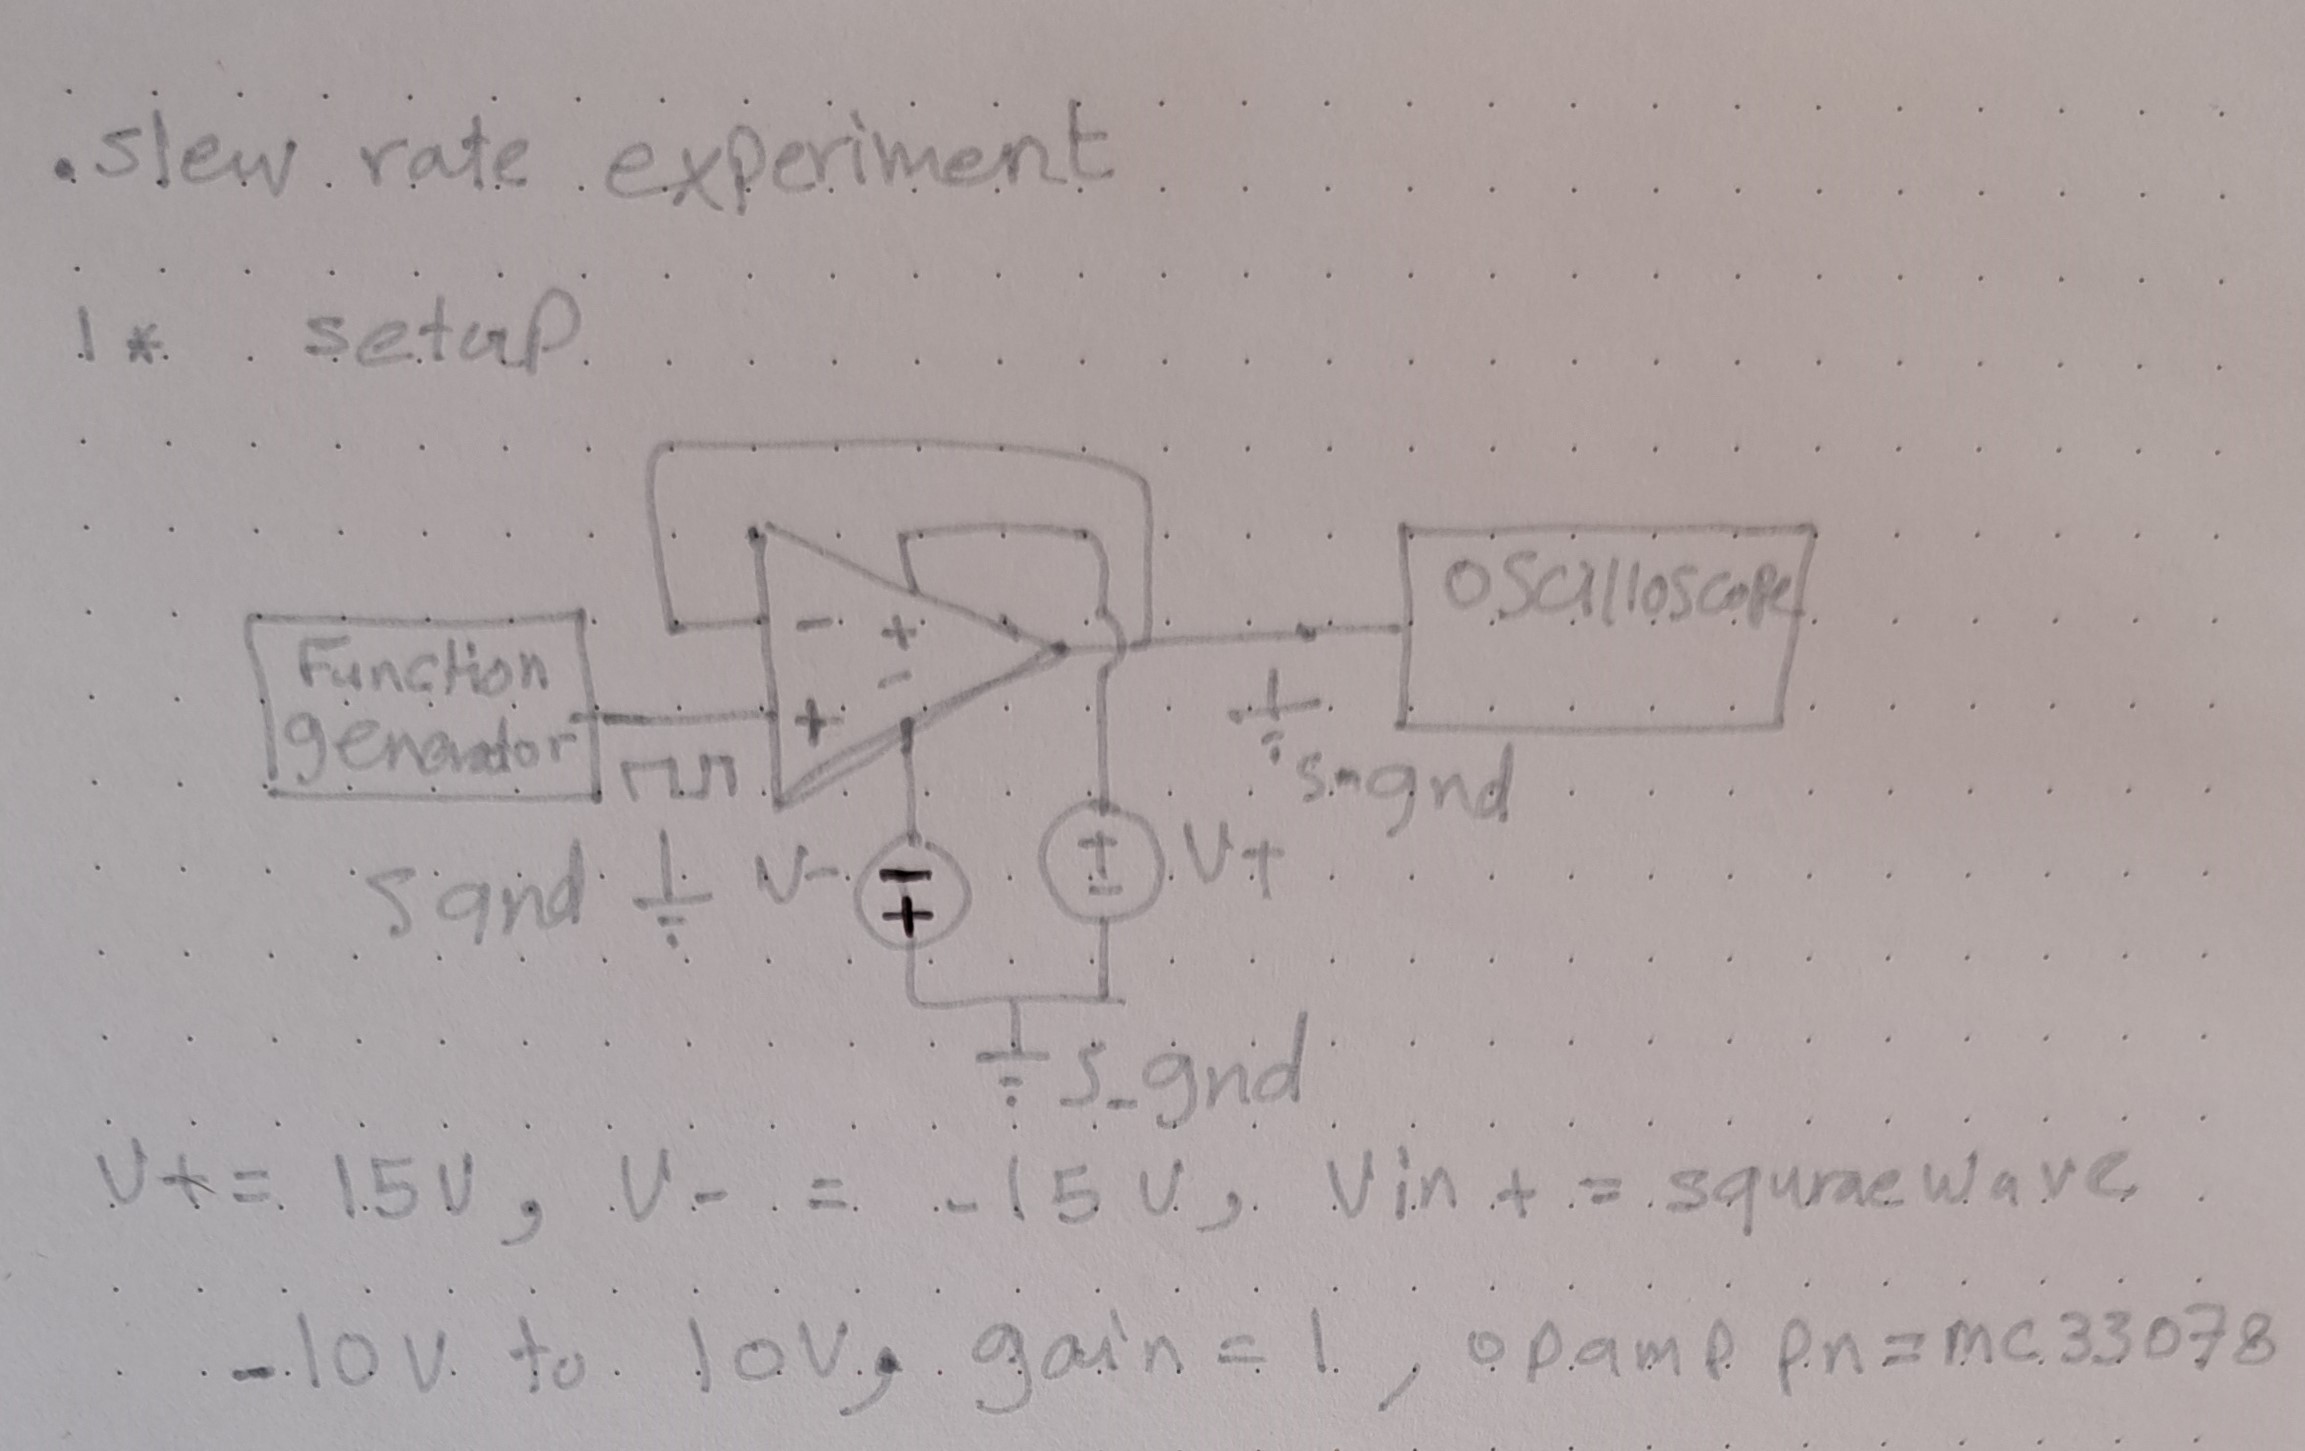 .slew rate experiment
1* setup
- +
-
+
Function
generator
oscilloscope
s-gnd
Sgnd
V-
-
+
+
-
V+
S_gnd
V+= 15V, V- = -15V, Vin+ = squraewave
-10V to 10V, gain = 1, opamp pn=mc33078